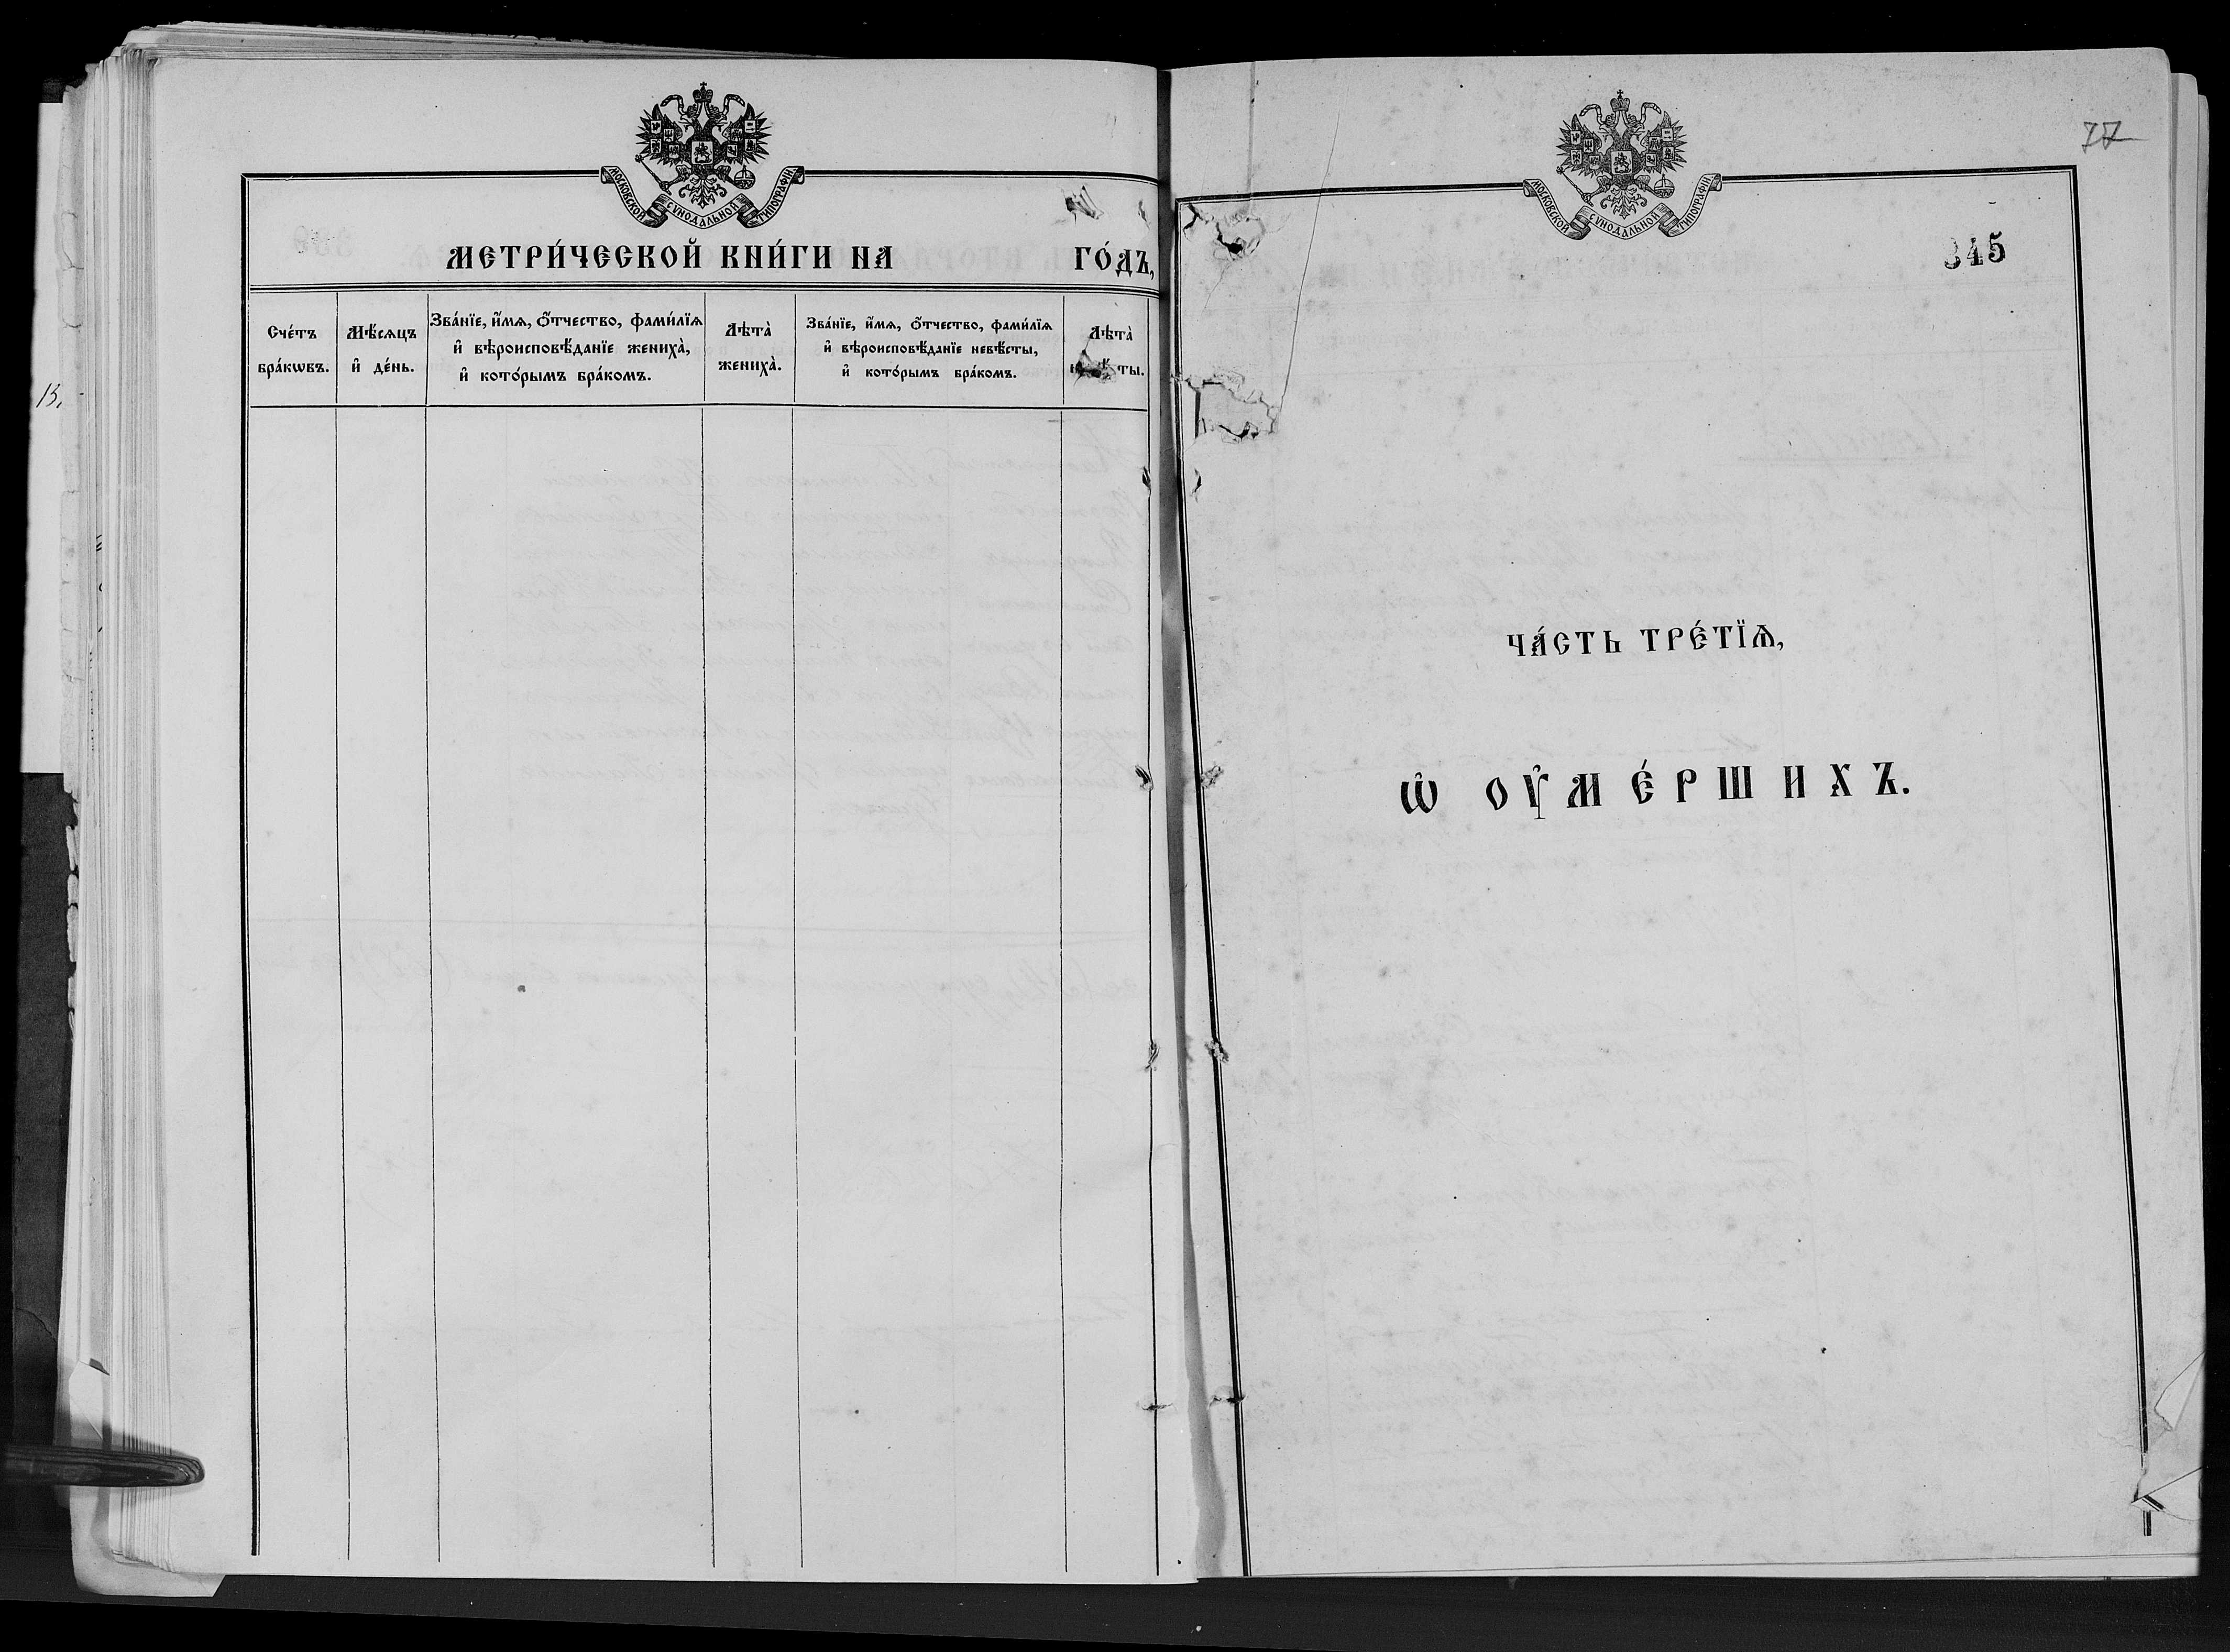 МОСКОВСКОЙ СѴНОДАЛЬНОЙ ТИПОГРАФІИ
МЕТРИ́ЧЕСКОЙ КНИ́ГИ НА ГО́ДЪ,
Сче́тъ бра́кѡвъ.
Мѣ́сяцъ и҆ де́нь.
Зва́нїе, и҆́мѧ, ѻ҆́тчество, фами́лїѧ
и҆ вѣроисповѣ́данїе жениха̀,
и҆ кото́рымъ бра́комъ.
Лѣта̀ жениха̀.
Зва́нїе, и҆́мѧ, ѻ҆́тчество, фами́лїѧ
и҆ вѣроисповѣ́данїе невѣ́сты,
и҆ кото́рымъ бра́комъ.
Лѣта̀
13.
МОСКОВСКОЙ СѴНОДАЛЬНОЙ ТИПОГРАФІИ
77
345
ЧА́СТЬ ТРЕ́ТЇѦ,
Ѡ҆ ОУ҆МЕ́РШИХЪ.